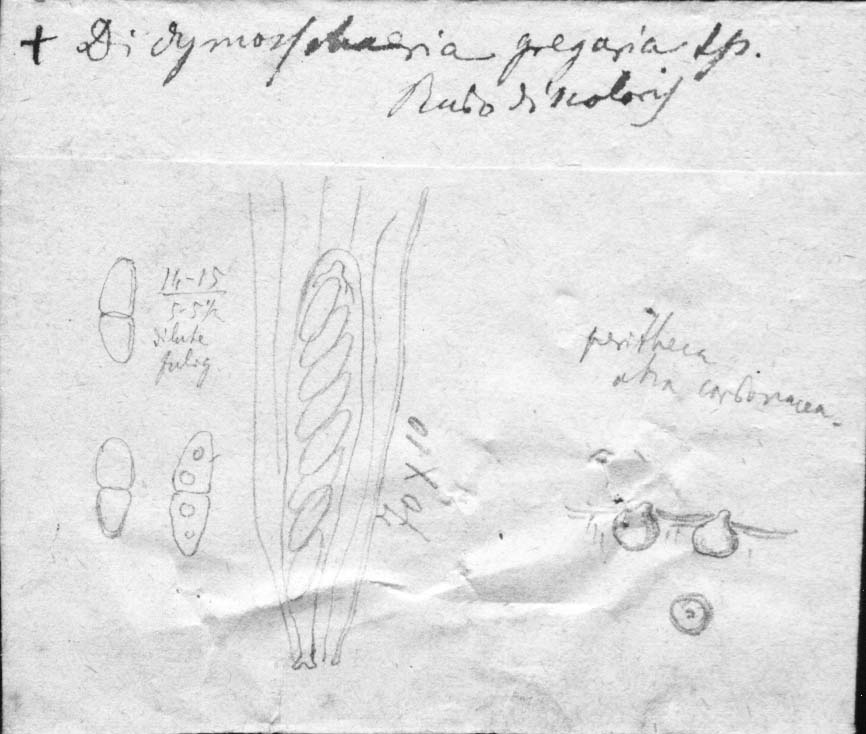 + Didymosphaeria gregaria Sp.
Rubo discoloris
14-15
5-5½
dilute
fulig
perithecia
atra carbonacea.
70 X 10